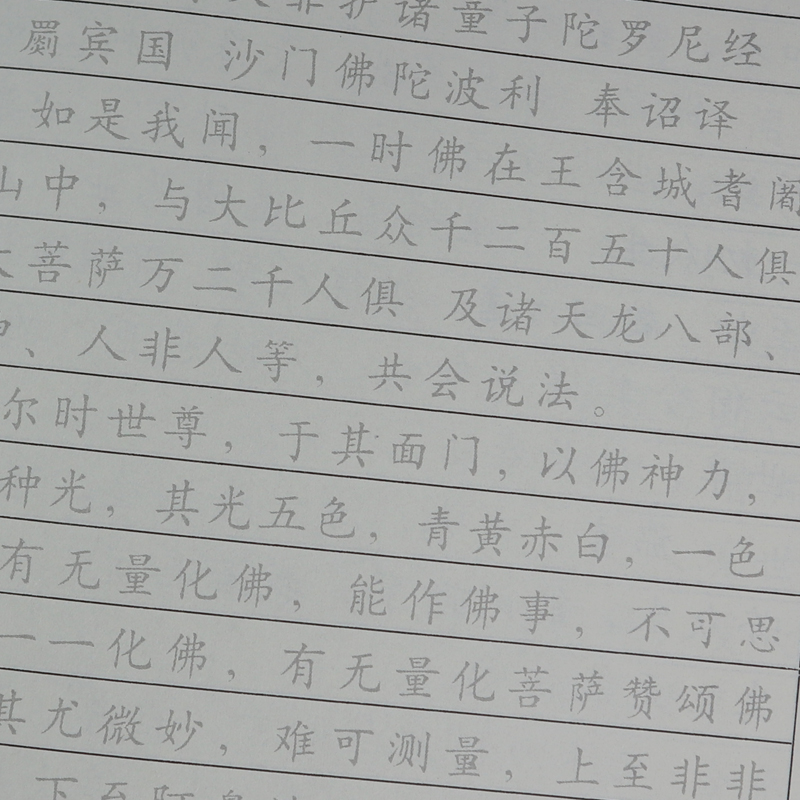 护诸童子陀罗尼经
罽宾国 沙门佛陀波利 奉诏译
如是我闻，一时佛在王含城耆阇
山中，与大比丘众千二百五十人俱
大菩萨万二千人俱 及诸天龙八部、
、人非人等，共会说法。
尔时世尊，于其面门，以佛神力，
种光，其光五色，青黄赤白，一色
有无量化佛，能作佛事，不可思
一一化佛，有无量化菩萨赞颂佛
其尤微妙，难可测量，上至非非
下至阿